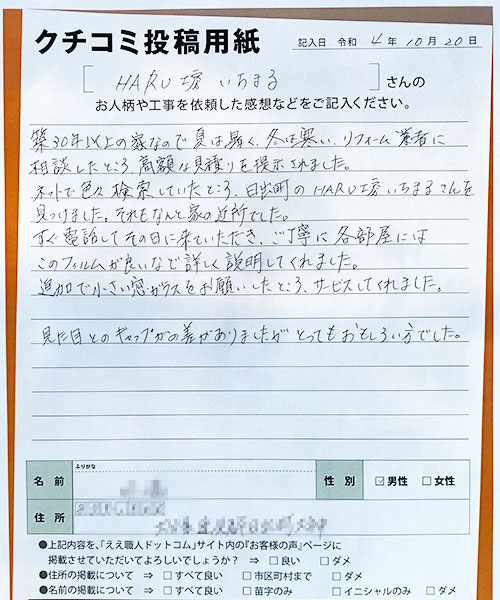 クチコミ投稿用紙
記入日 令和 4年 10月 20日
[ HARU坊 いちまる ] さんの
お人柄や工事を依頼した感想などをご記入ください。
築30年以上の家なので夏は暑く、冬は寒い、リフォーム業者に
相談したところ高額な見積りを提示されました。
ネットで色々検索していたところ、日出町のHARU坊いちまるさんを
見つけました。それもなんと家の近所でした。
すぐ電話してその日に来ていただき、ご丁寧に各部屋には
このフィルムが良いなど詳しく説明してくれました。
追加で小さい窓ガラスをお願いしたところ、サービスしてくれました。
見た目とのギャップがの差がありましたがとってもおもしろい方でした。
ふりがな
名前
性別 ☑男性 □女性
住所
●上記内容を、「ええ職人ドットコム」サイト内の『お客様の声』ページに
掲載させていただいてよろしいでしょうか? ⇒ □良い □ダメ
●住所の掲載について ⇒ □すべて良い □市区町村まで □ダメ
●名前の掲載について ⇒ □すべて良い □苗字のみ □イニシャルのみ □ダメ